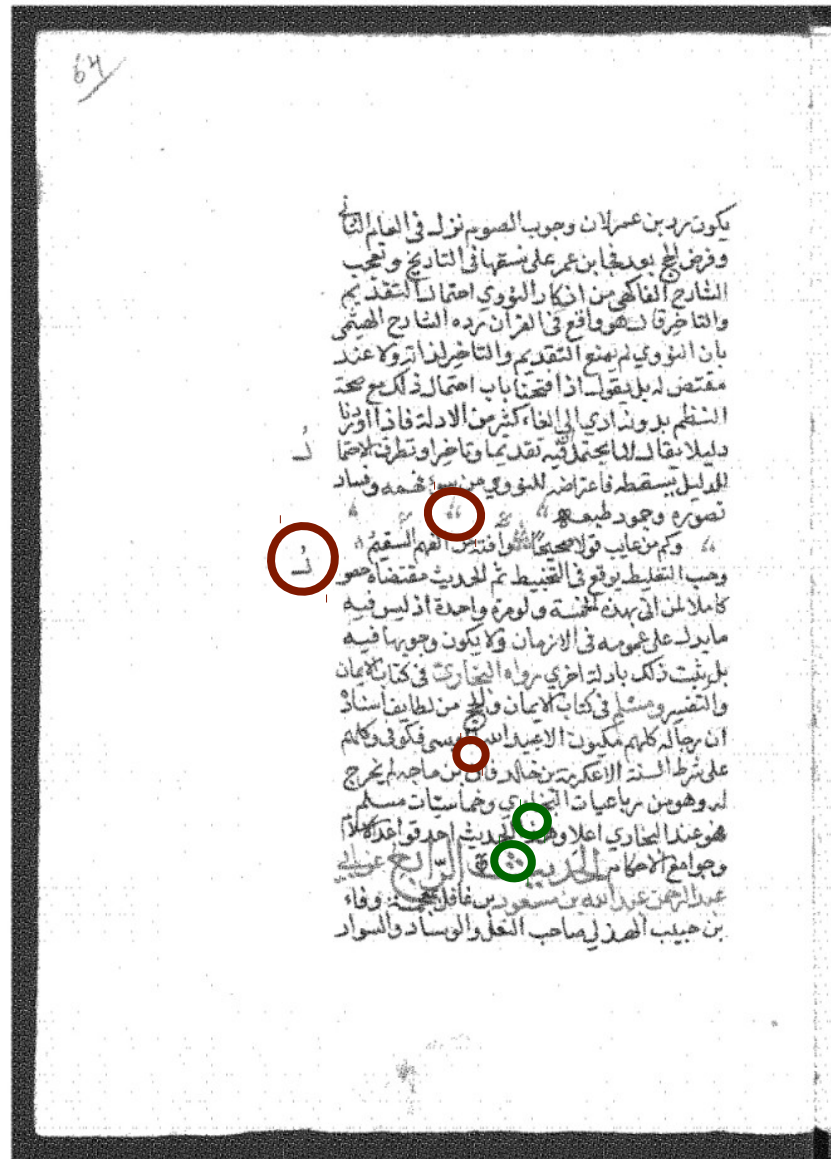 64
يكون رد بن عمر لان وجوب الصوم نزل في العام الثاني
وفرض الحج بعد فجا بن عمر على نسقهما في التاريخ وتعجب
الشارح الفاكهي من انكار النووي احتمال التقديم
والتاخر قال هو واقع في القران رده الشارح الهيثمي
بان النووي لم يمنع التقديم والتاخر لذاته ولا عند
مقتض له بل يقول اذا فتحنا باب احتمال ذلك مع صحة
النظم بدونه ادي الى الغاء كثير من الادلة فاذا اوردنا
دليلا يقال لنا يحتمل فيه تقديما وتاخرا وتطرق الاحتما
للدليل يسقطه فاعتراضه للنووي من سوء فهمه وفساد
تصوره وجمود طبعه
وكم من عايب قولا صحيحا وافته من الفهم السقيم
وحب التغليط يوقع في التخبيط ثم الحديث مقتضاه حصو
كاملا لمن اتى بهذه الخمسة ولو مرة واحدة اذ ليس فيه
ما يدل على عمومه في الازمان ولا يكون وجوبها فيه
بل يثبت ذلك بادلة اخري رواه البخاري في كتاب الايمان
والتفسير ومسلم في كتاب الايمان والحج من لطايف اسناد
ان رجاله كلهم مكيون الا عبيد الله العبسى فكوفى وكلهم
على شرط الستة الا عكرمة بن خالد فان بن ماجه لم يخرج
له وهو من رباعيات البخاري وخماسيات مسلم
هو عند البخاري اعلا وهذا الحديث احد قواعد الاسلام
وجوامع الاحكام الحديث الرابع عن ابي
عبد الرحمن عبد الله بن مسعود بن غافل بمعجمة وفاء
بن حبيب الهذلي صاحب النعل والوساد والسوار